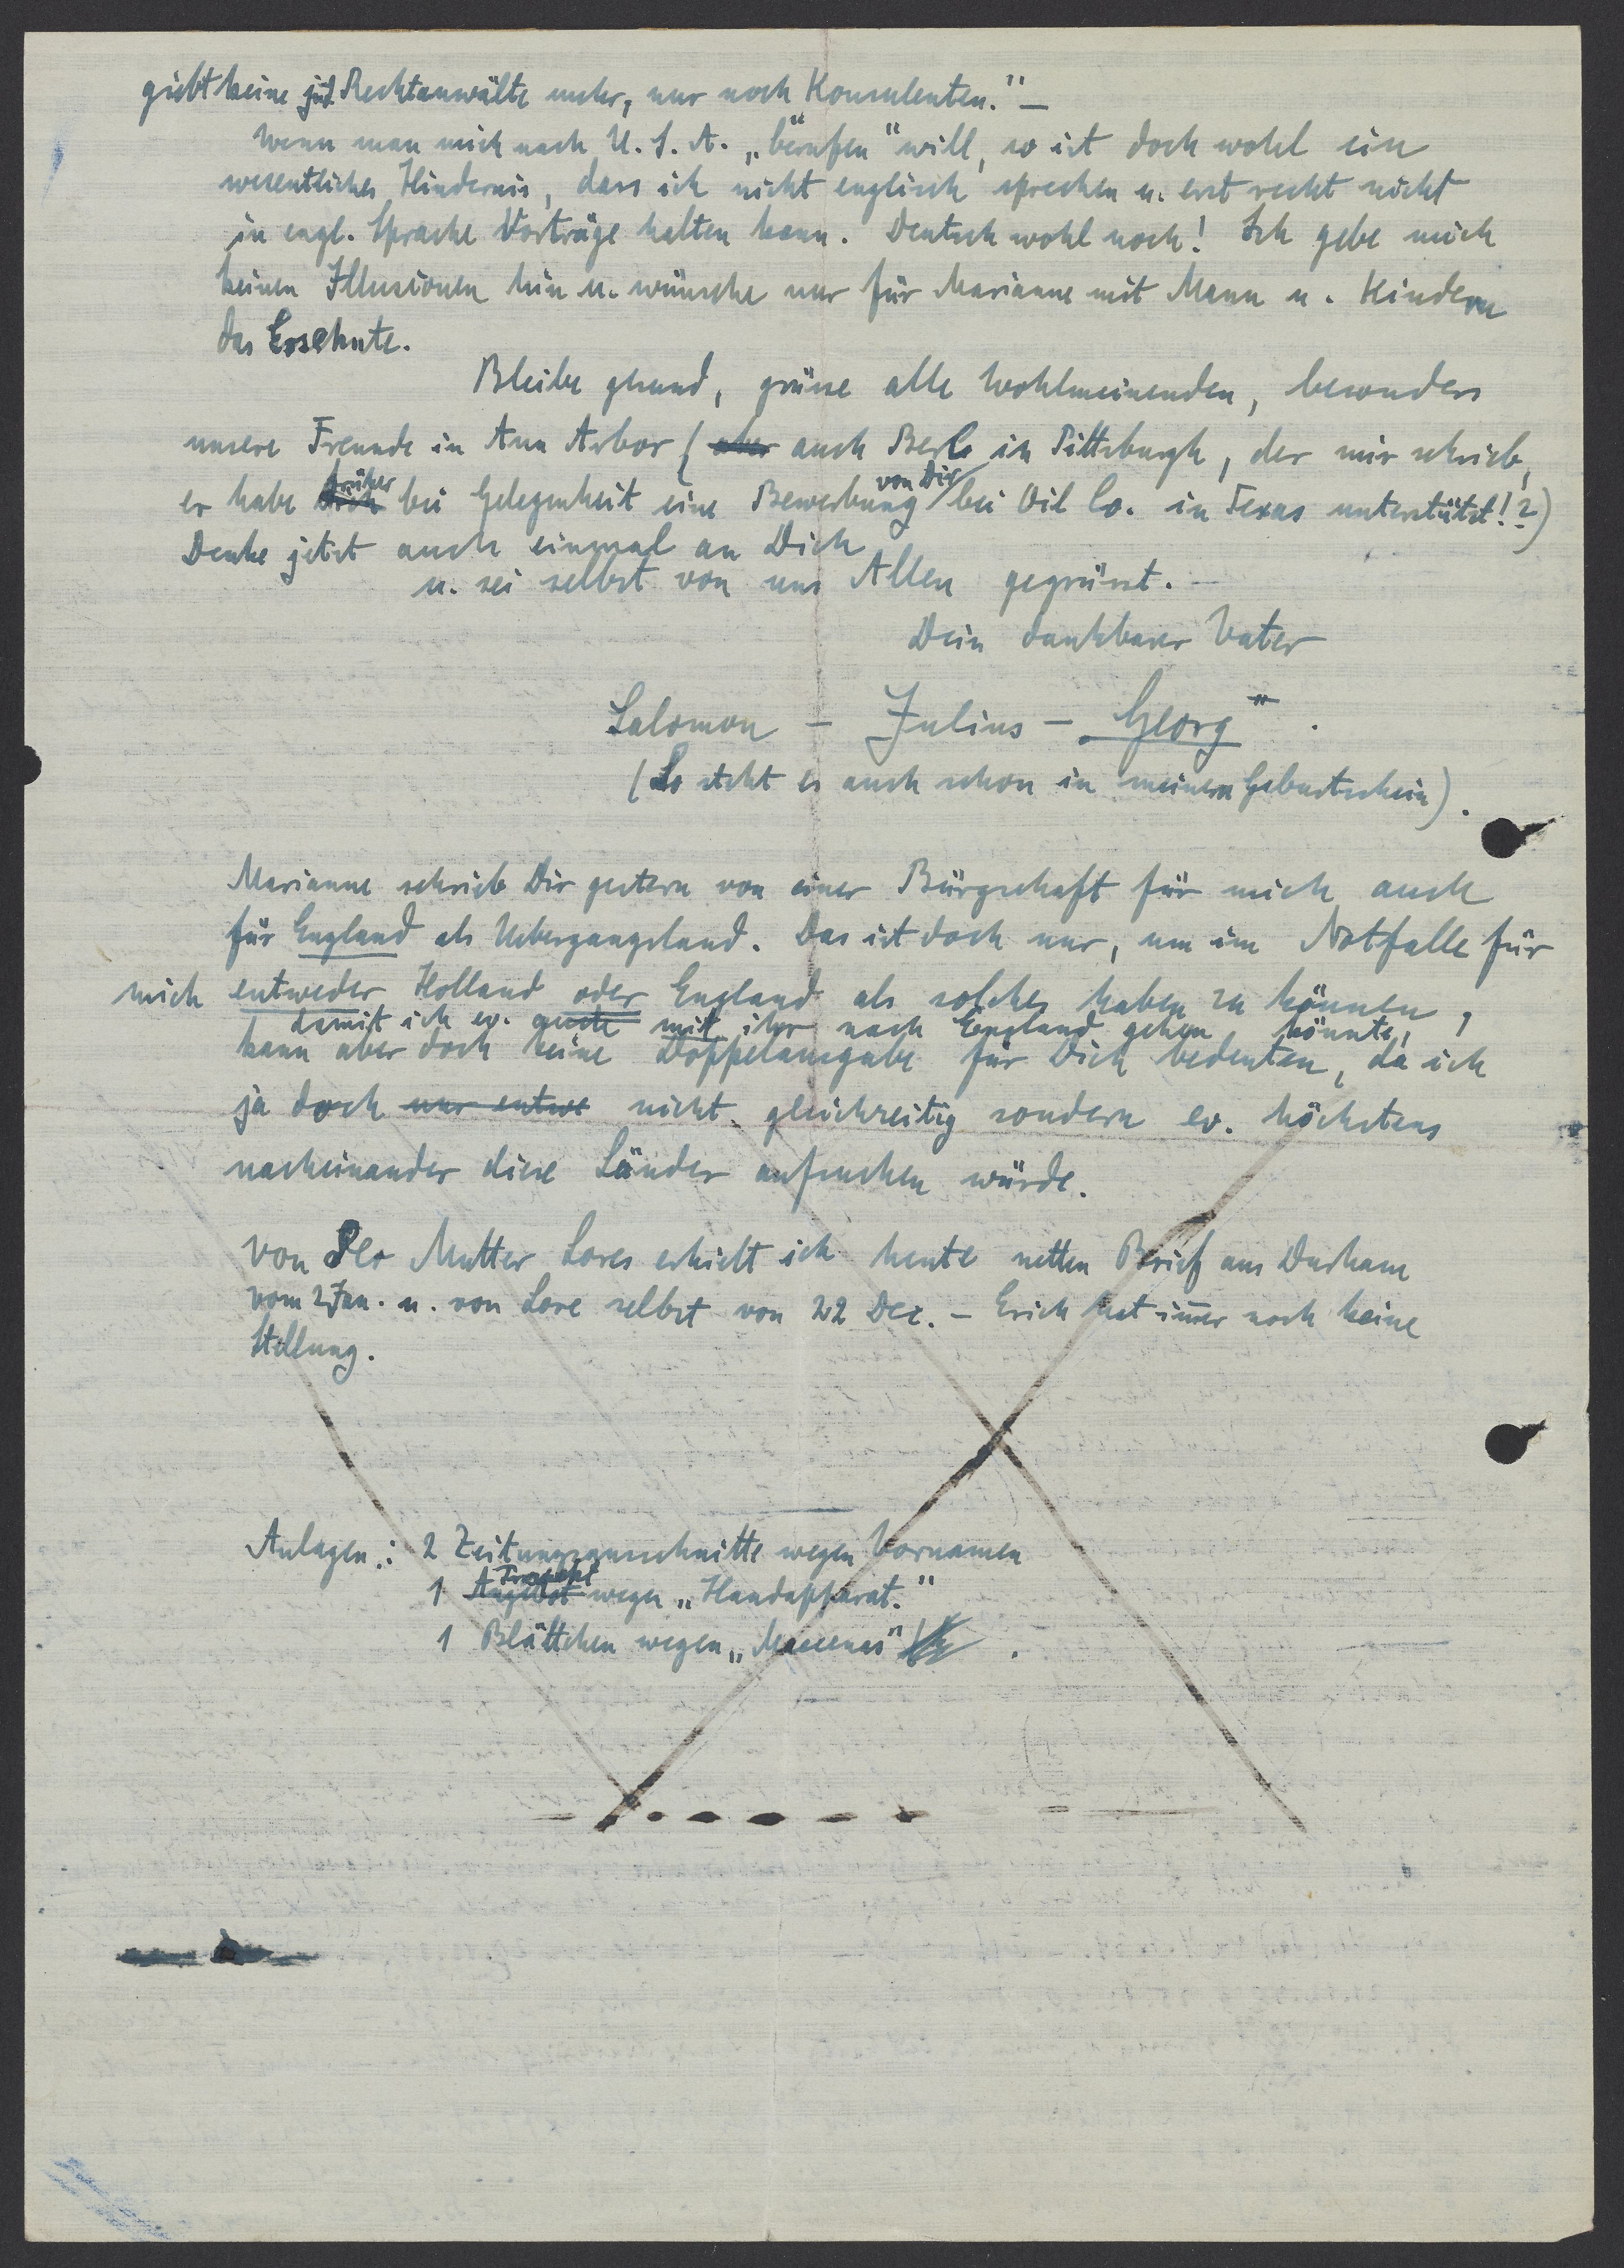 giebt keine jüd. Rechtanwälte mehr, nur noch Konsulenten." —
Wenn man mich nach U.S.A. „berufen" will, so ist doch wohl ein
wesentliches Hindernis, dass ich nicht englisch sprechen u. erst recht nicht
in engl. Sprache Vorträge halten kann. Deutsch wohl noch! Ich gebe mich
keinen Illusionen hin u. wünsche nur für Marianne mit Mann u. Kindern
das Ersehnte.
Bleibe gesund, grüsse alle Wohlmeinenden, besonders
unsere Freunde in Ann Arbor (aber auch Berl in Pittsburgh, der mir schrieb,
früher von Dir
er habe bei Gelegenheit eine Bewerbung bei Oil Co. in Texas unterstützt!?)
Denke jetzt auch einmal an Dich
u. sei selbst von uns Allen gegrüsst.
Dein dankbarer Vater
Salomon – Julius – Georg" .
(So steht es auch schon in meinem Geburtschein).
Marianne schrieb Dir gestern von einer Bürgschaft für mich auch
für England als Uebergangsland. Das ist doch nur, um im Notfalle für
mich entweder Holland oder England als solches haben zu können,
damit ich ev. mit ihr nach England gehen könnte,
kann aber doch keine Doppelausgabe für Dich bedeuten, da ich
ja doch nur entwe nicht gleichzeitig sondern ev. höchstens
nacheinander diese Länder aufsuchen würde.
Von Der Mutter Lores erhielt ich heute netten Brief aus Durham
vom 2 Jan. u. von Lore selbst von 22 Dez. – Erich hat im̄er noch keine
Stellung.
Anlagen: 2 Zeitungsausschnitte wegen Vornamen
Prospekt
1 Angebot wegen „Handapparat."
1 Blättchen wegen „Maecenas" .